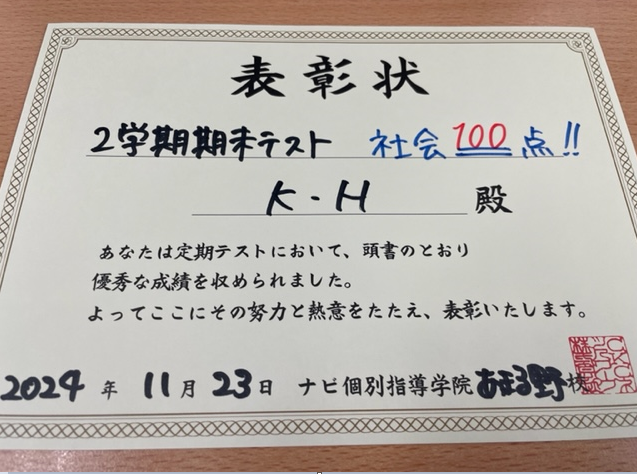 表彰状
2学期期末テスト 社会100点!!
K・H 殿
あなたは定期テストにおいて、頭書のとおり
優秀な成績を収められました。
よってここにその努力と熱意をたたえ、表彰いたします。
2024年11月23日 ナビ個別指導学院 あまる野校